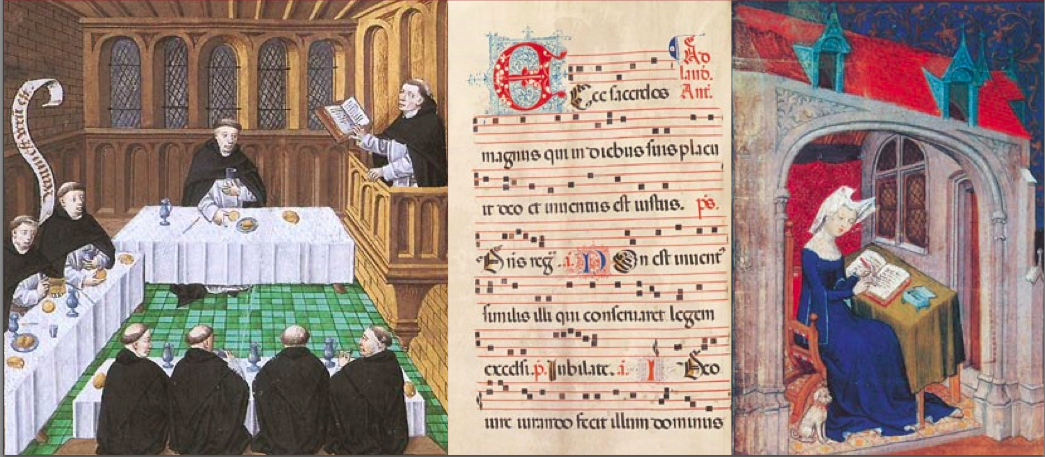 Ad
laud.
E Cce sacerdos Ant.
magnus qui in diebus suis placu
it deo et inuentus est iustus. ps.
Dñs reg̃. a. N On est inuent᾽
similis illi qui conseruaret legem
excelsi. p. Iubilate. a. I Deo
iure iurando fecit illum dominus